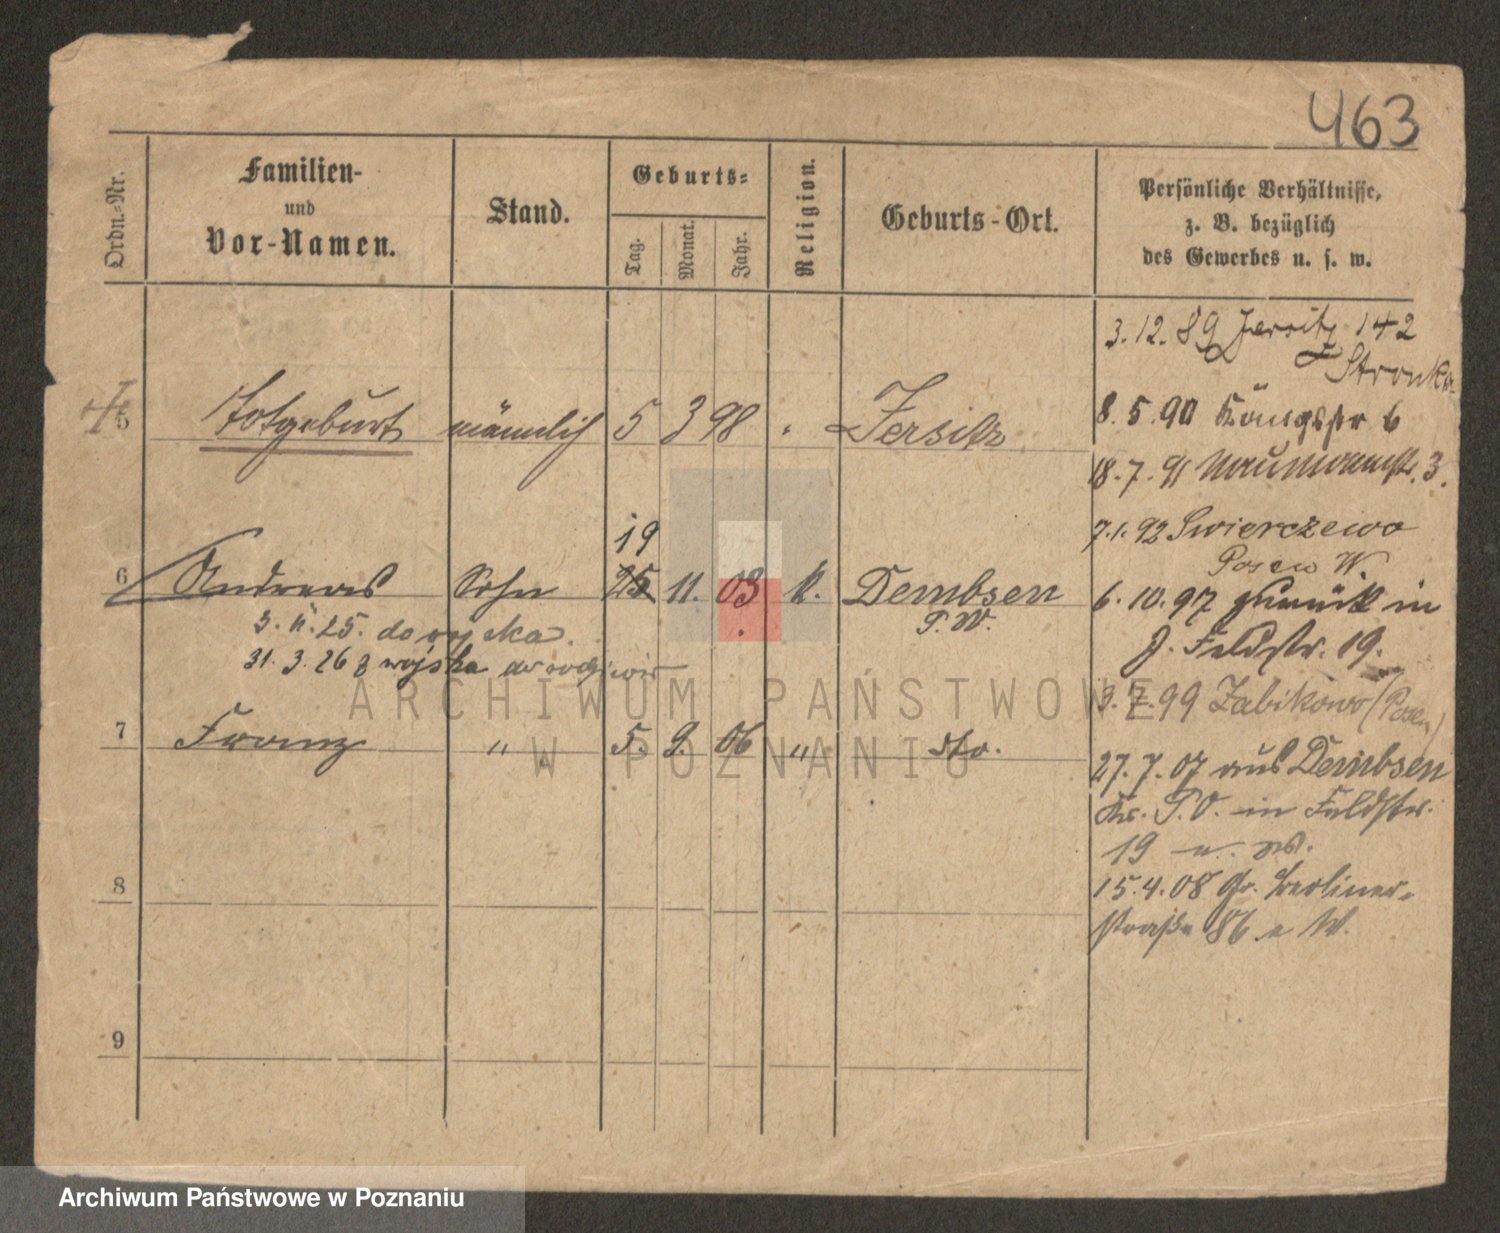 463
Ordn.-Nr.
Familien-
und
Vor-Namen.
Stand.
Geburts-
Tag.
Monat.
Jahr.
Religion.
Geburts-Ort.
Persönliche Verhältnisse,
z. B. bezüglich
des Gewerbes u. s. w.
5 Totgeburt männlich 5 3 98 Jersitz
19
6 Andreas Sohn 25 11. 03 k. Dembsen
P. W.
3. 11. 25. do wojska.
31. 3. 26 z wojska
7 Franz " 5. 9. 06 " dto.
8
9
3.12.89 Jersitz 142
Stronka
8.5.90 Königstr 6
18.7.91 Naumannstr. 3.
7.1.92 Swierczewo
Posen W.
6.10.97 zurück in
J. Feldstr. 19.
3.7.99 Zabikowo (Posen)
27.7.07 aus Dembsen
Kr. P.O. in Feldstr.
19
15.4.08 Gr. Berliner-
straße 86
ARCHIWUM PAŃSTWOWE
W POZNANIU
Archiwum Państwowe w Poznaniu